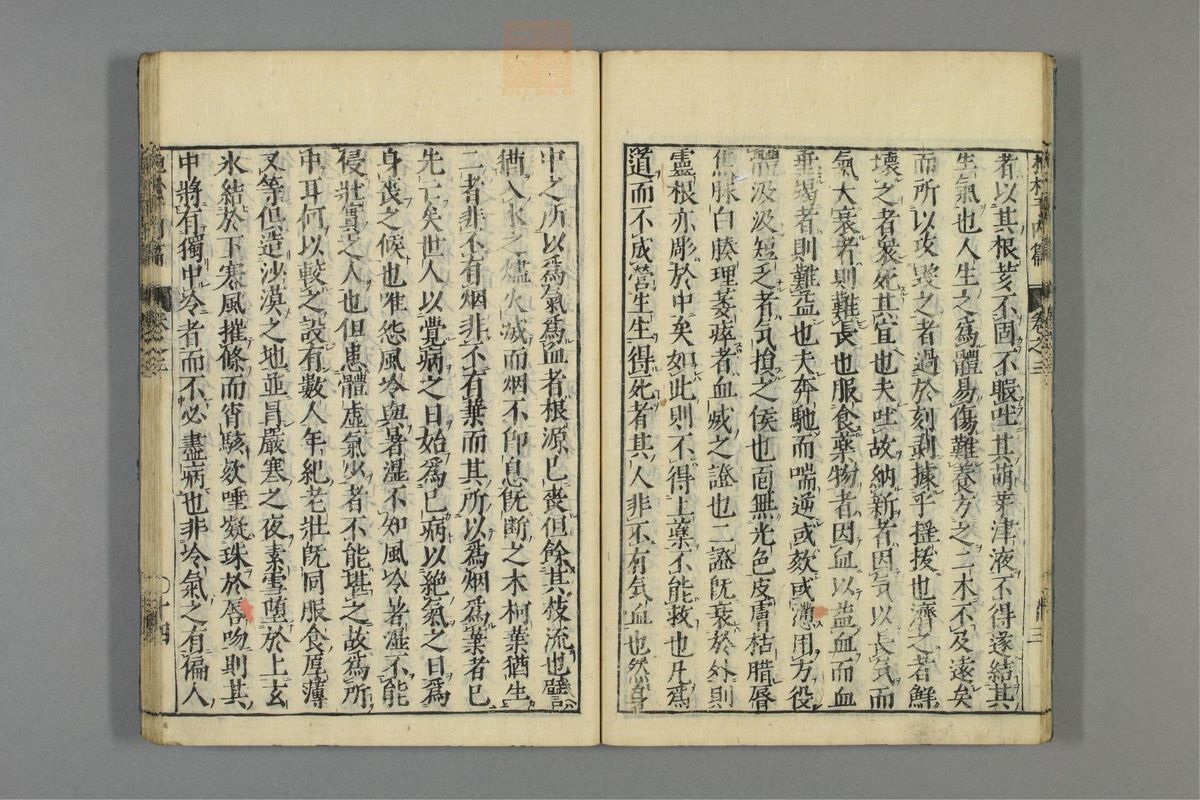 者以其根荄不固不暇吐其萌芽津液不得遂結其
生氣也人生之爲體易傷難養方之二木不及遠矣
而所以攻毀之者過於刻剥據乎摇拔也濟之者鮮
壞之者衆死其宜也夫吐故納新者因気以長気而
氣大衰者則難長也服食藥物者因血以益血而血
垂竭者則難益也夫奔馳而喘逆或欬或懣用方役
體汲汲短乏者気損之侯也面無光色皮膚枯腊唇
焦脉白腠理萎瘁者血減之證也二證既衰於外則
靈根亦彫於中矣如此則不得上藥不能救也凡爲
道而不成營生生得死者其人非不有気血也然身
中之所以爲氣爲血者根源已喪但餘其枝流也譬
猶入水之燼火滅而烟不即息既斷之木柯葉猶生
二者非不有烟非不有葉而其所以爲烟爲葉者已
先亡矣世人以覺病之日始爲已病以絶氣之日爲
身喪之候也惟怨風冷與暑濕不知風冷暑濕不能
侵壯實之人也但患體虚氣少者不能堪之故爲所
中耳何以較之設有數人年紀老壯既同服食厚薄
又等俱造沙漠之地並冒嚴寒之夜素雪堕於上玄
氷結於下寒風摧條而宵駭欬唾凝珠於唇吻則其
中將有獨中冷者而不必盡病也非冷氣之有偏人
卷之三
十四